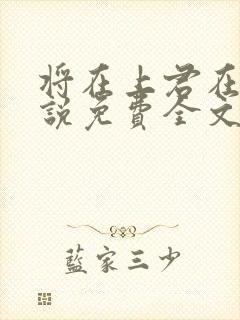 将在上君在
説免費全文
藍家三少